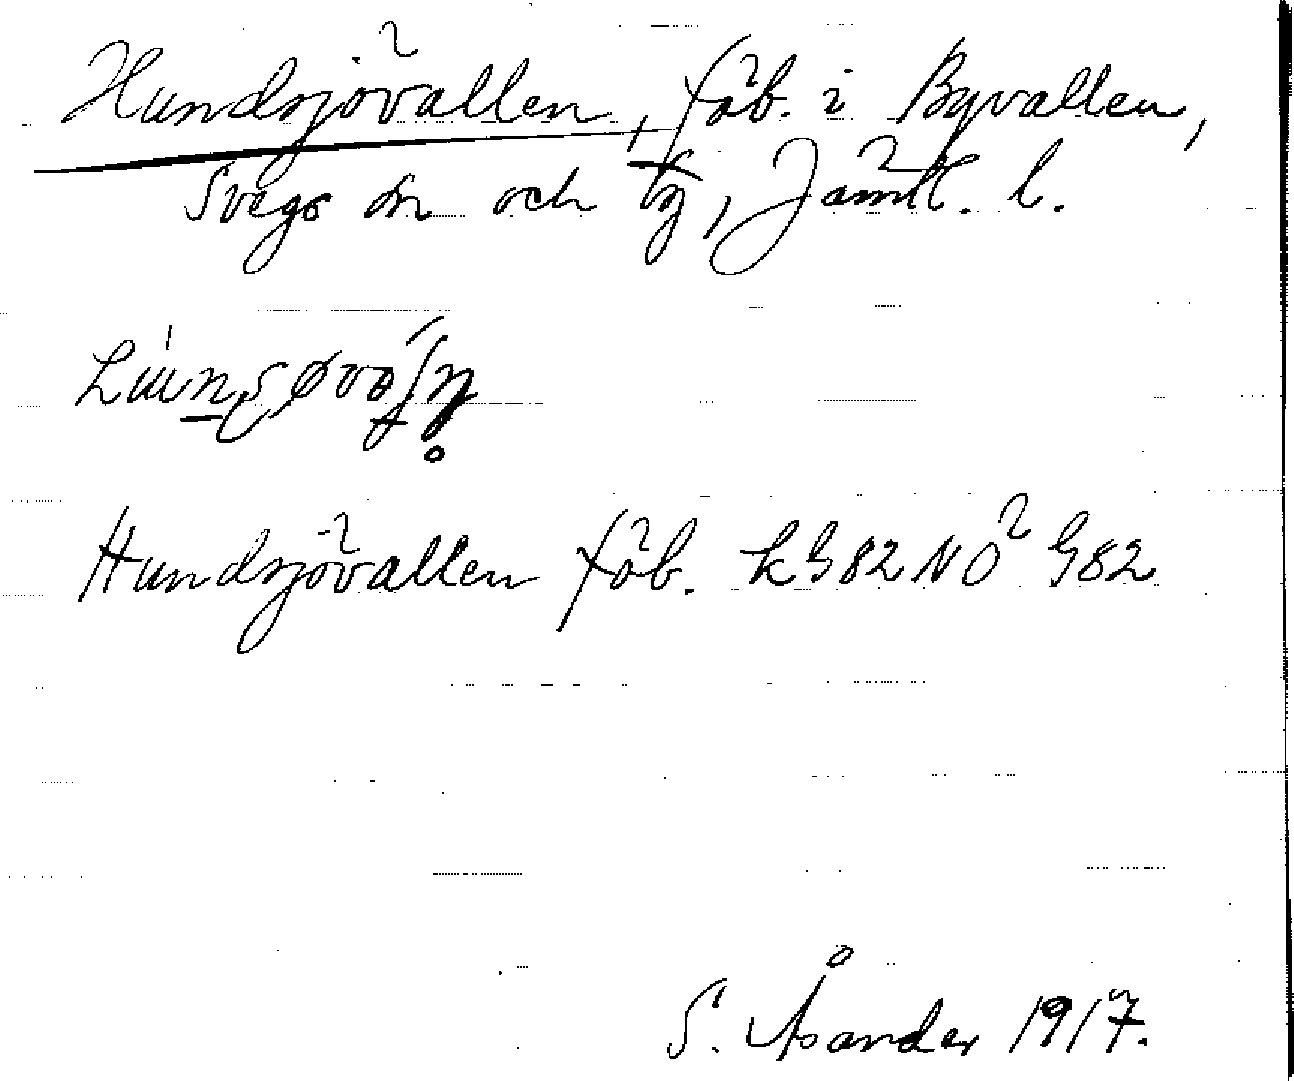 Hundsjövallen, fäb. i Byvallen,
Svegs sn och tg, Jämtl. l.
Hundsjövallen fäb. k G82 NO G82
S. Åsander 1917.